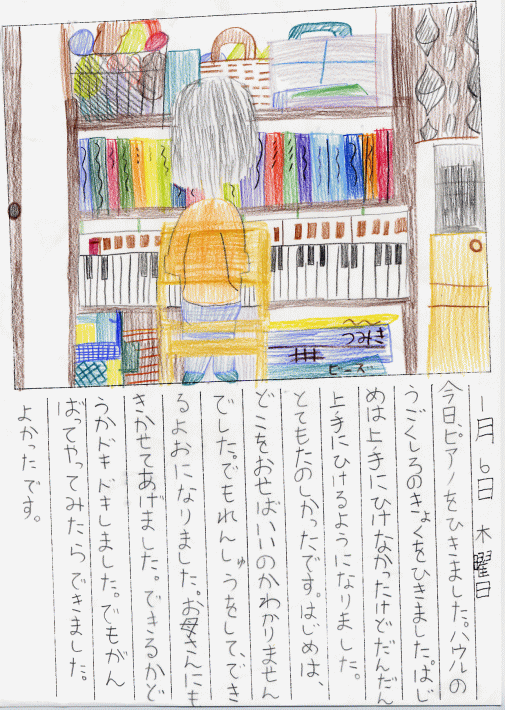 つみき
ビーズ
1月6日 木曜日
今日、ピアノをひきました。ハウルの
うごくしろのきょくをひきました。はじ
めは上手にひけなかったけどだんだん
上手にひけるようになりました。
とてもたのしかったです。はじめは、
どこをおせばいいのかわかりません
でした。でもれんしゅうをして、でき
るよおになりました。お母さんにも
きかせてあげました。できるかど
うかドキドキしました。でもがん
ばってやってみたらできました。
よかったです。